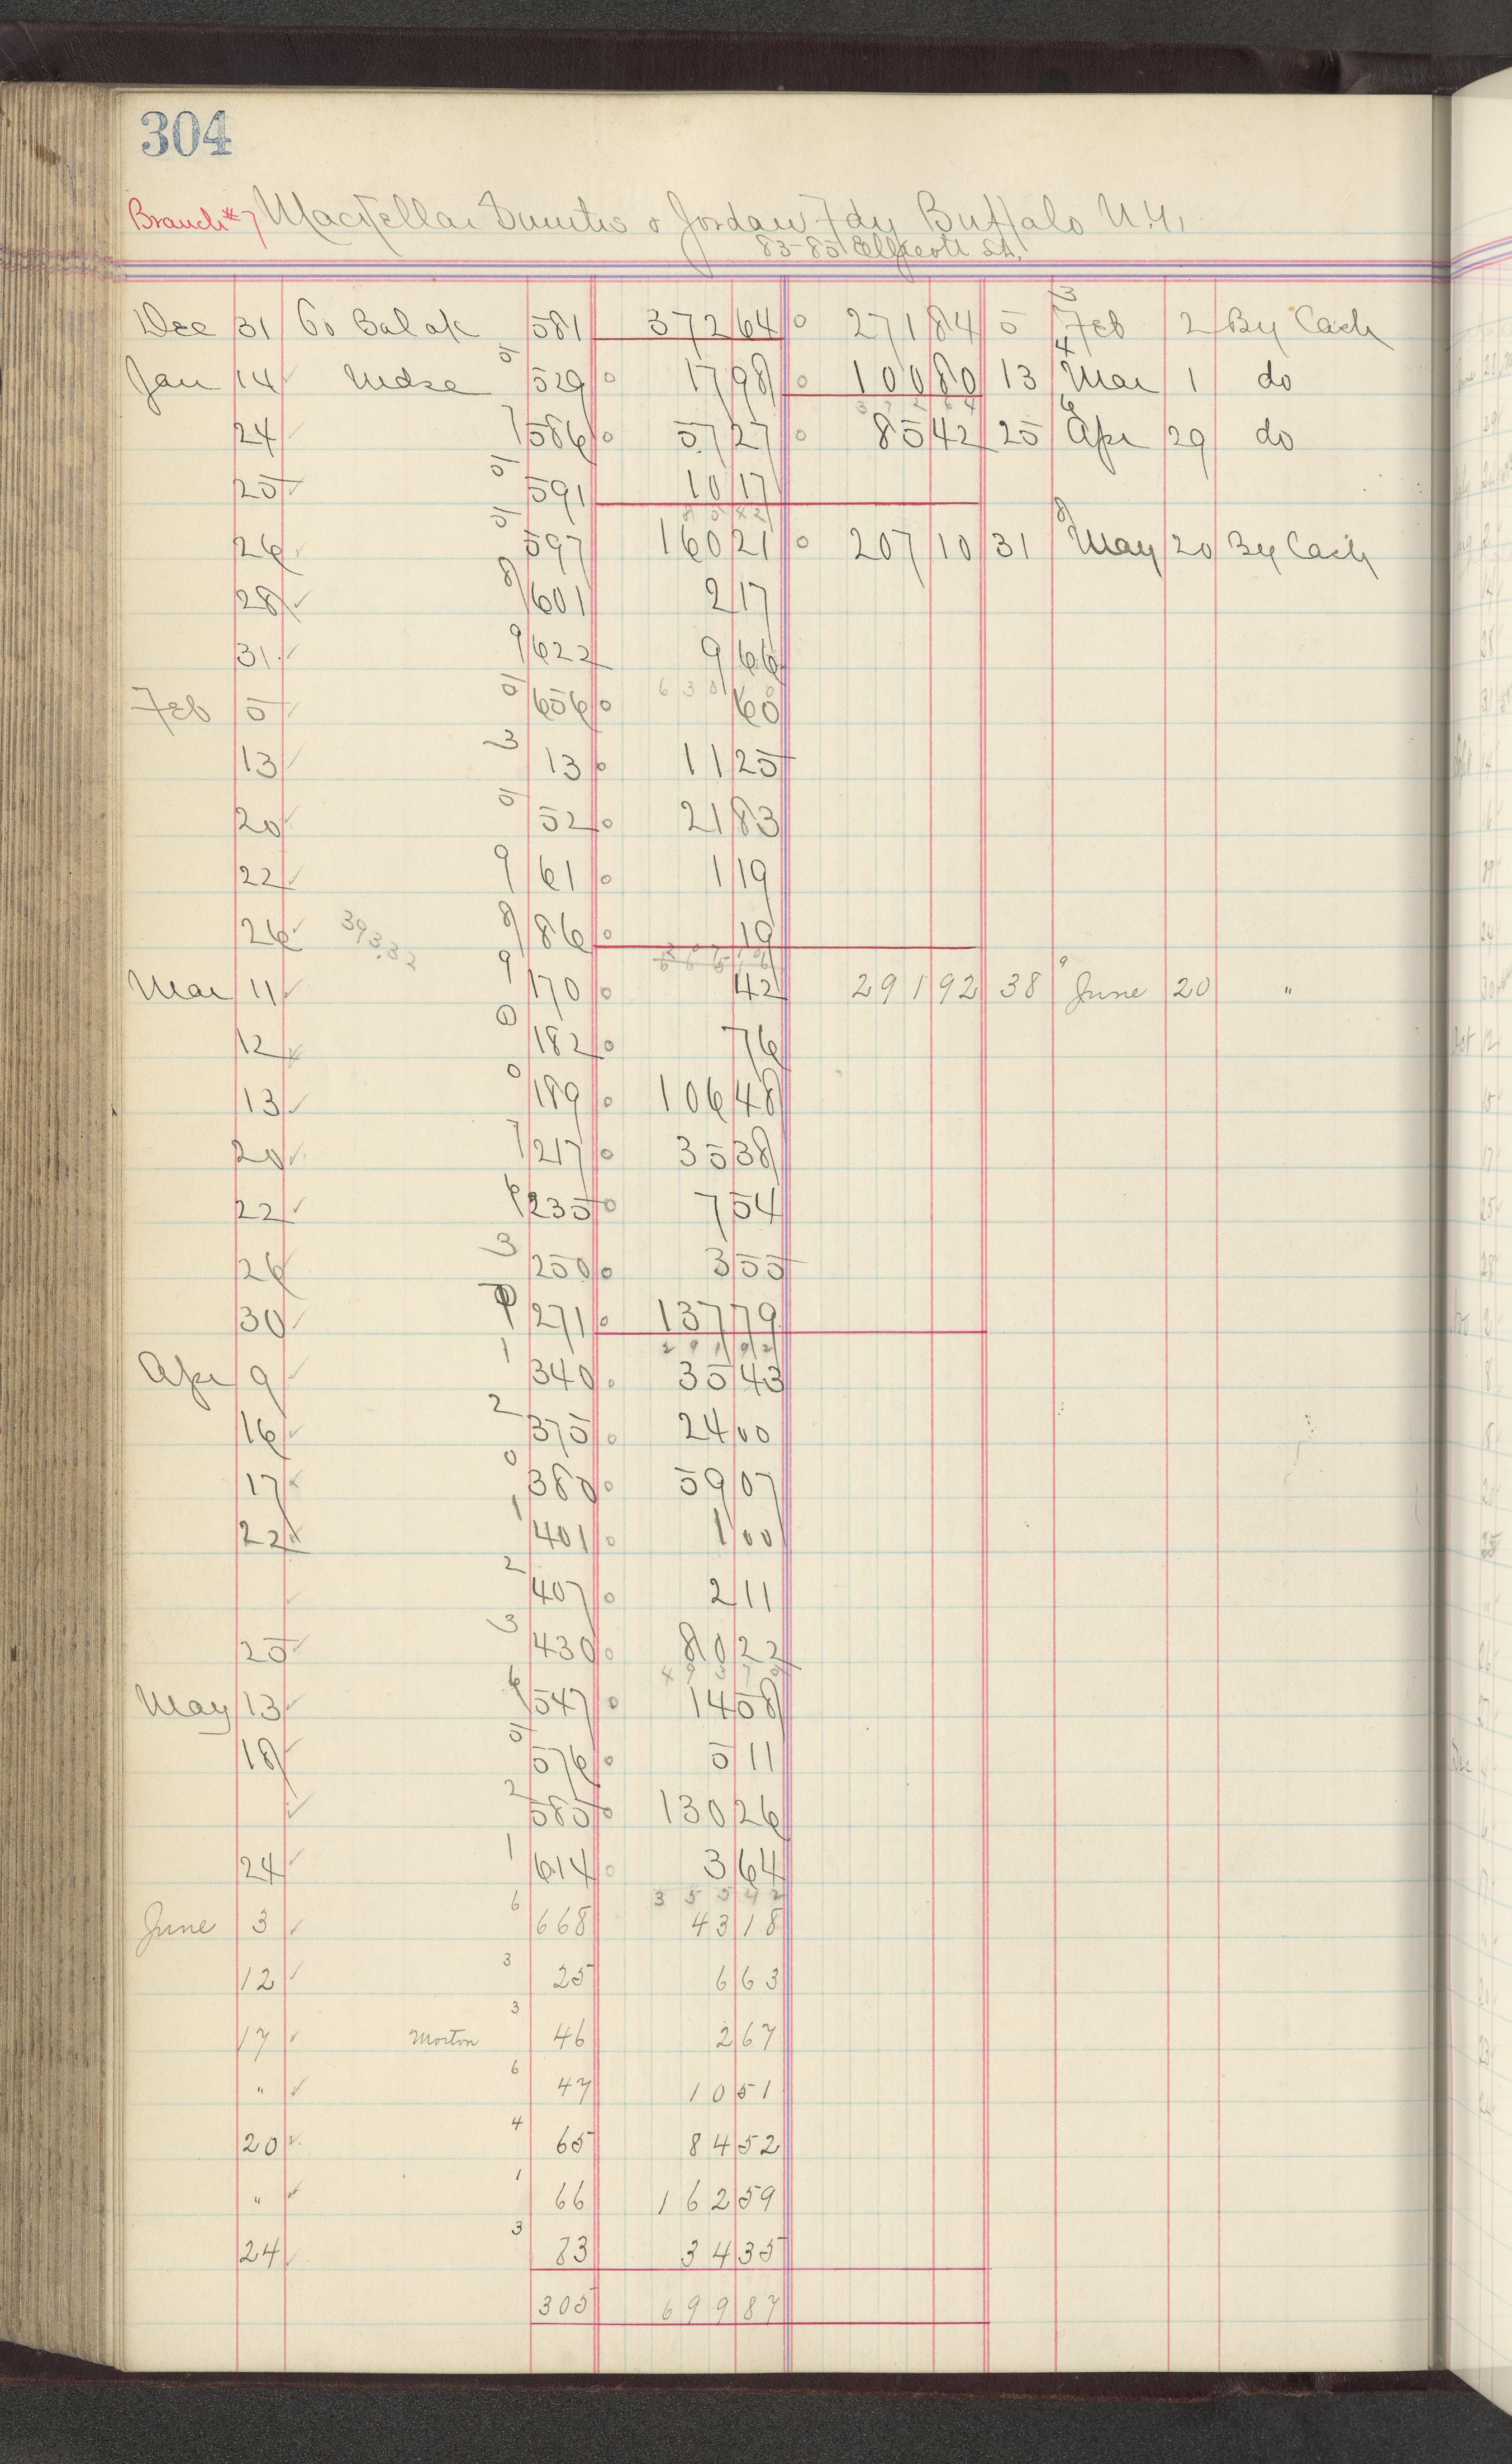 304
Branch #7 MacKellar Smiths & Jordan Fdy Buffalo N.Y.
83-85 Ellicott St.
Dec 31 To Bal ok 581 372 64 271 84 5 3 Feb 2 By Cash
Jan 14 Mdse 5 529 17 98 100 80 13 4 Mar 1 do
372 64
24 7 586 57 27 85 42 25 6 Apr 29 do
25 5 591 10 17
85 42
26 5 597 160 21 207 10 31 8 May 20 By Cash
28 8 601 2 17
31 9 622 9 66
Feb 5 5 656 60
13 3 13 11 25
20 5 52 21 83
22 9 61 1 19
26 393.32 8 86 19
Mar 11 9 170 42 291 92 38 9 June 20 "
12 0 182 76
13 0 189 106 48
20 7 217 35 38
22 6 235 7 54
26 3 250 3 55
30 271 137 79
291 92
Apr 9 1 340 35 43
16 2 375 24 00
17 0 380 59 07
22 1 401 1 00
2 407 2 11
25 3 430 80 22
May 13 6 547 14 58
18 5 576 5 11
2 585 130 26
24 1 614 3 64
355 42
June 3 6 668 43 18
12 3 25 6 63
17 Morton 3 46 2 67
" 6 47 10 51
20 4 65 84 52
" 1 66 162 59
24 3 83 34 35
305 699 87